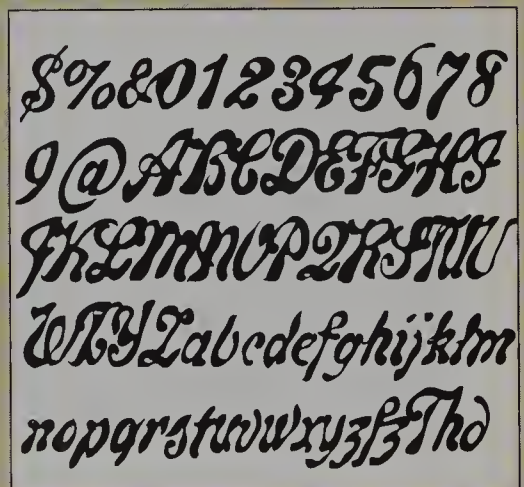 $%&012345678
9@ABCDEFGHI
JKLMNOPQRSTUV
WXYZabcdefghijklm
nopqrstuvwxyzßThd